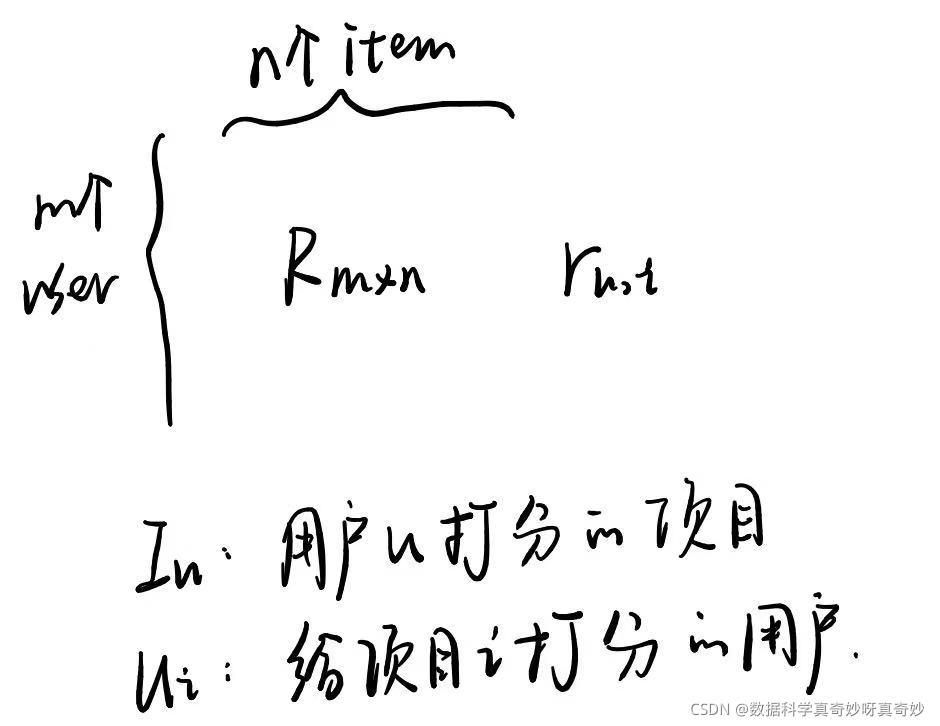 n个 item
m个
user
R_{m×n} r_{u,i}
I_u: 用户u打分的项目
U_i: 给项目i打分的用户.
CSDN @数据科学真奇妙呀真奇妙